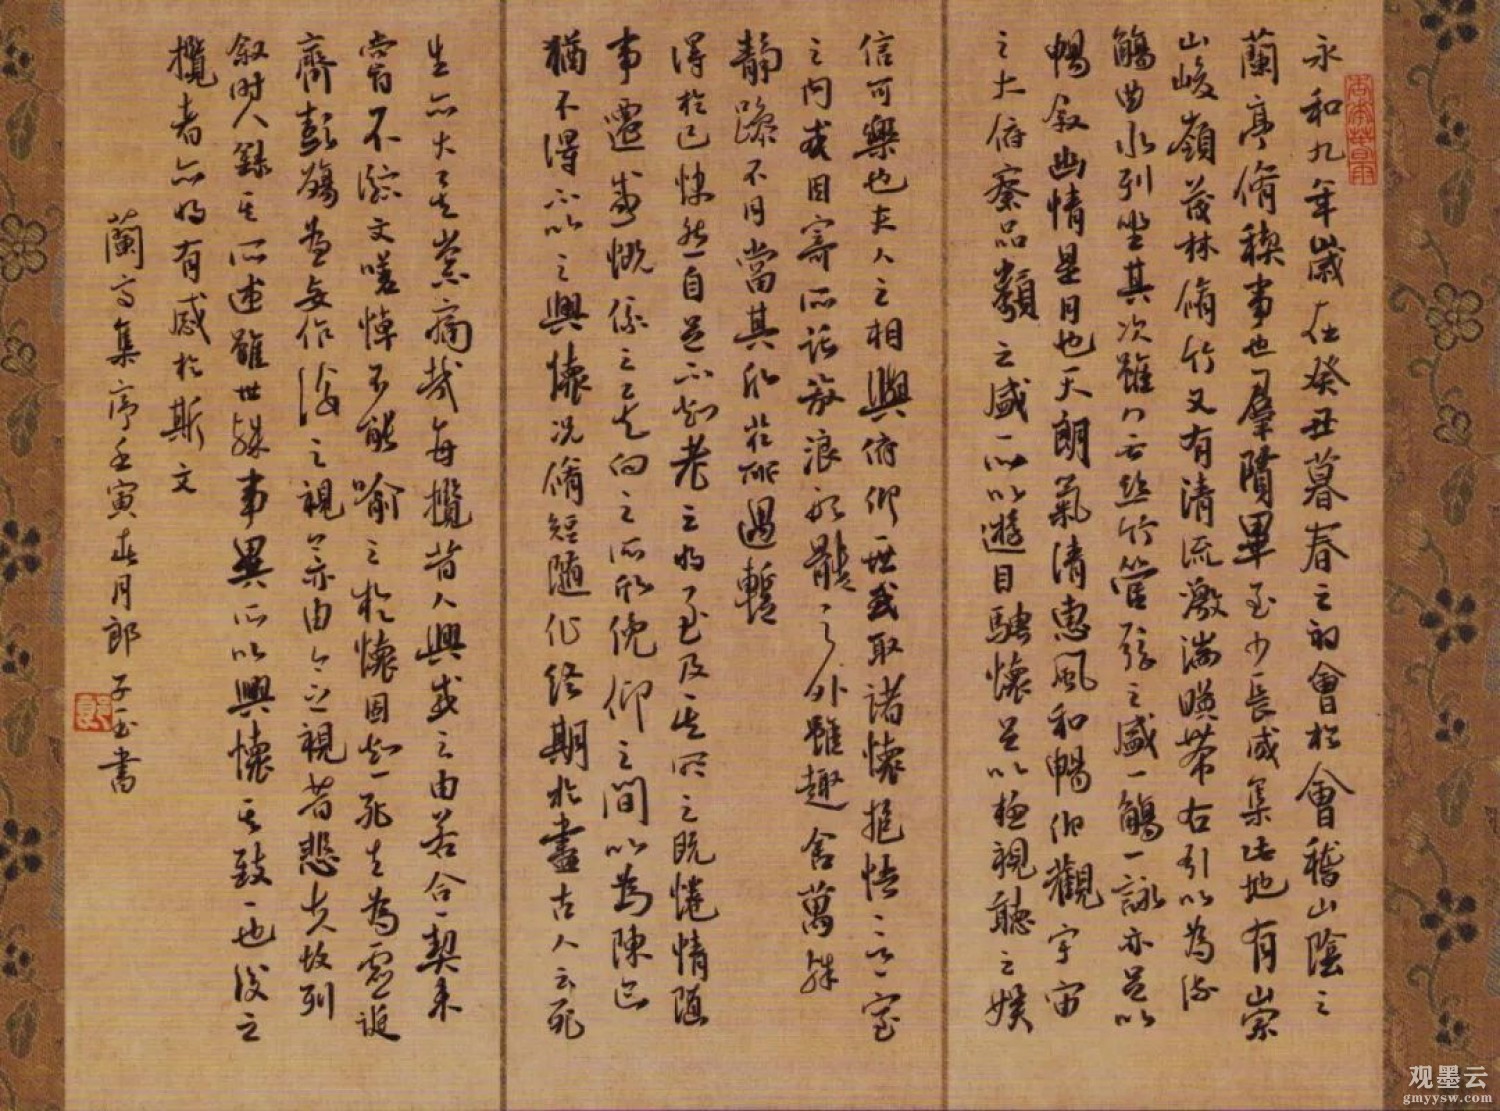 永和九年歲在癸丑暮春之初會於會稽山陰之
蘭亭脩稧事也羣賢畢至少長咸集此地有崇
山峻嶺茂林脩竹又有清流激湍暎帶右引以為流
觴曲水列坐其次雖無絲竹管弦之盛一觴一詠亦足以
暢叙幽情是日也天朗氣清惠風和暢仰觀宇宙
之大俯察品類之盛所以遊目騁懷足以極視聽之娛
信可樂也夫人之相與俯仰一世或取諸懷抱悟言一室
之內或因寄所託放浪形骸之外雖趣舍萬殊
靜躁不同當其欣於所遇暫
得於己怏然自足不知老之將至及其所之既惓情隨
事遷感慨係之矣向之所欣俛仰之間以為陳迹
猶不得不以之興懷況脩短隨化終期於盡古人云死
生亦大矣豈不痛哉每攬昔人興感之由若合一契未
嘗不臨文嗟悼不能喻之於懷固知一死生為虛誕
齊彭殤為妄作後之視今亦由今之視昔悲夫故列
叙時人錄其所述雖世殊事異所以興懷其致一也後之
攬者亦將有感於斯文
蘭亭集序壬寅春月郎子玉書
观墨云
gmyysw.com